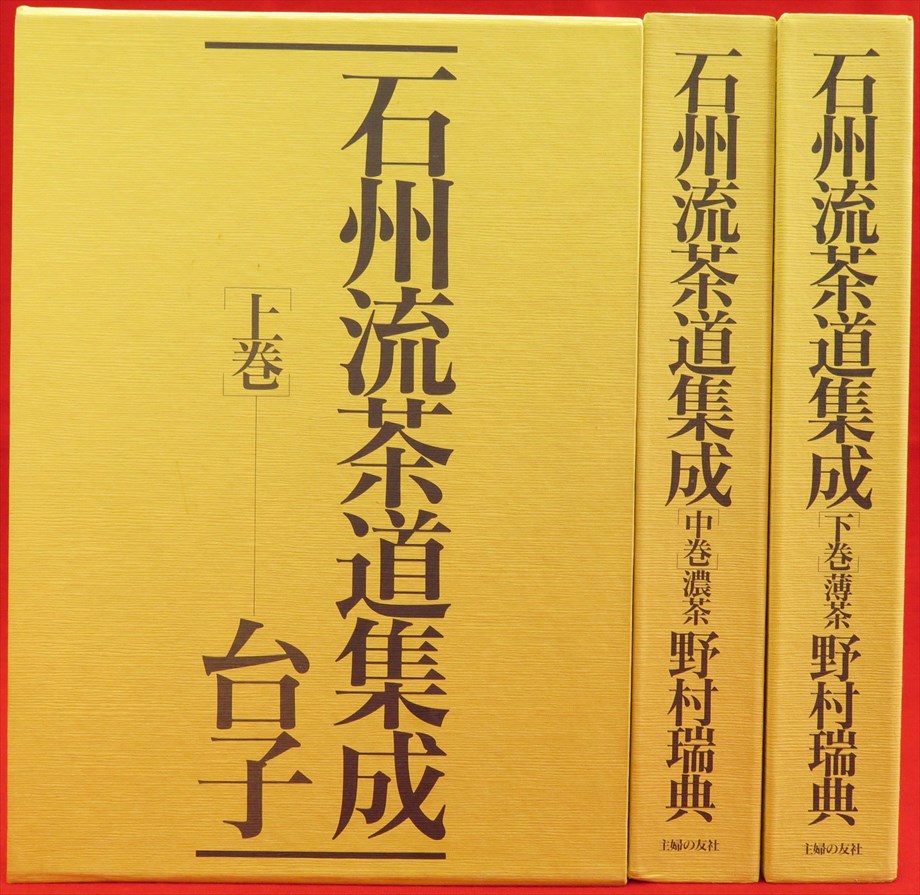 石州流茶道集成
［上巻］
台子
石州流茶道集成［中巻］濃茶 野村瑞典
主婦の友社
石州流茶道集成［下巻］薄茶 野村瑞典
主婦の友社